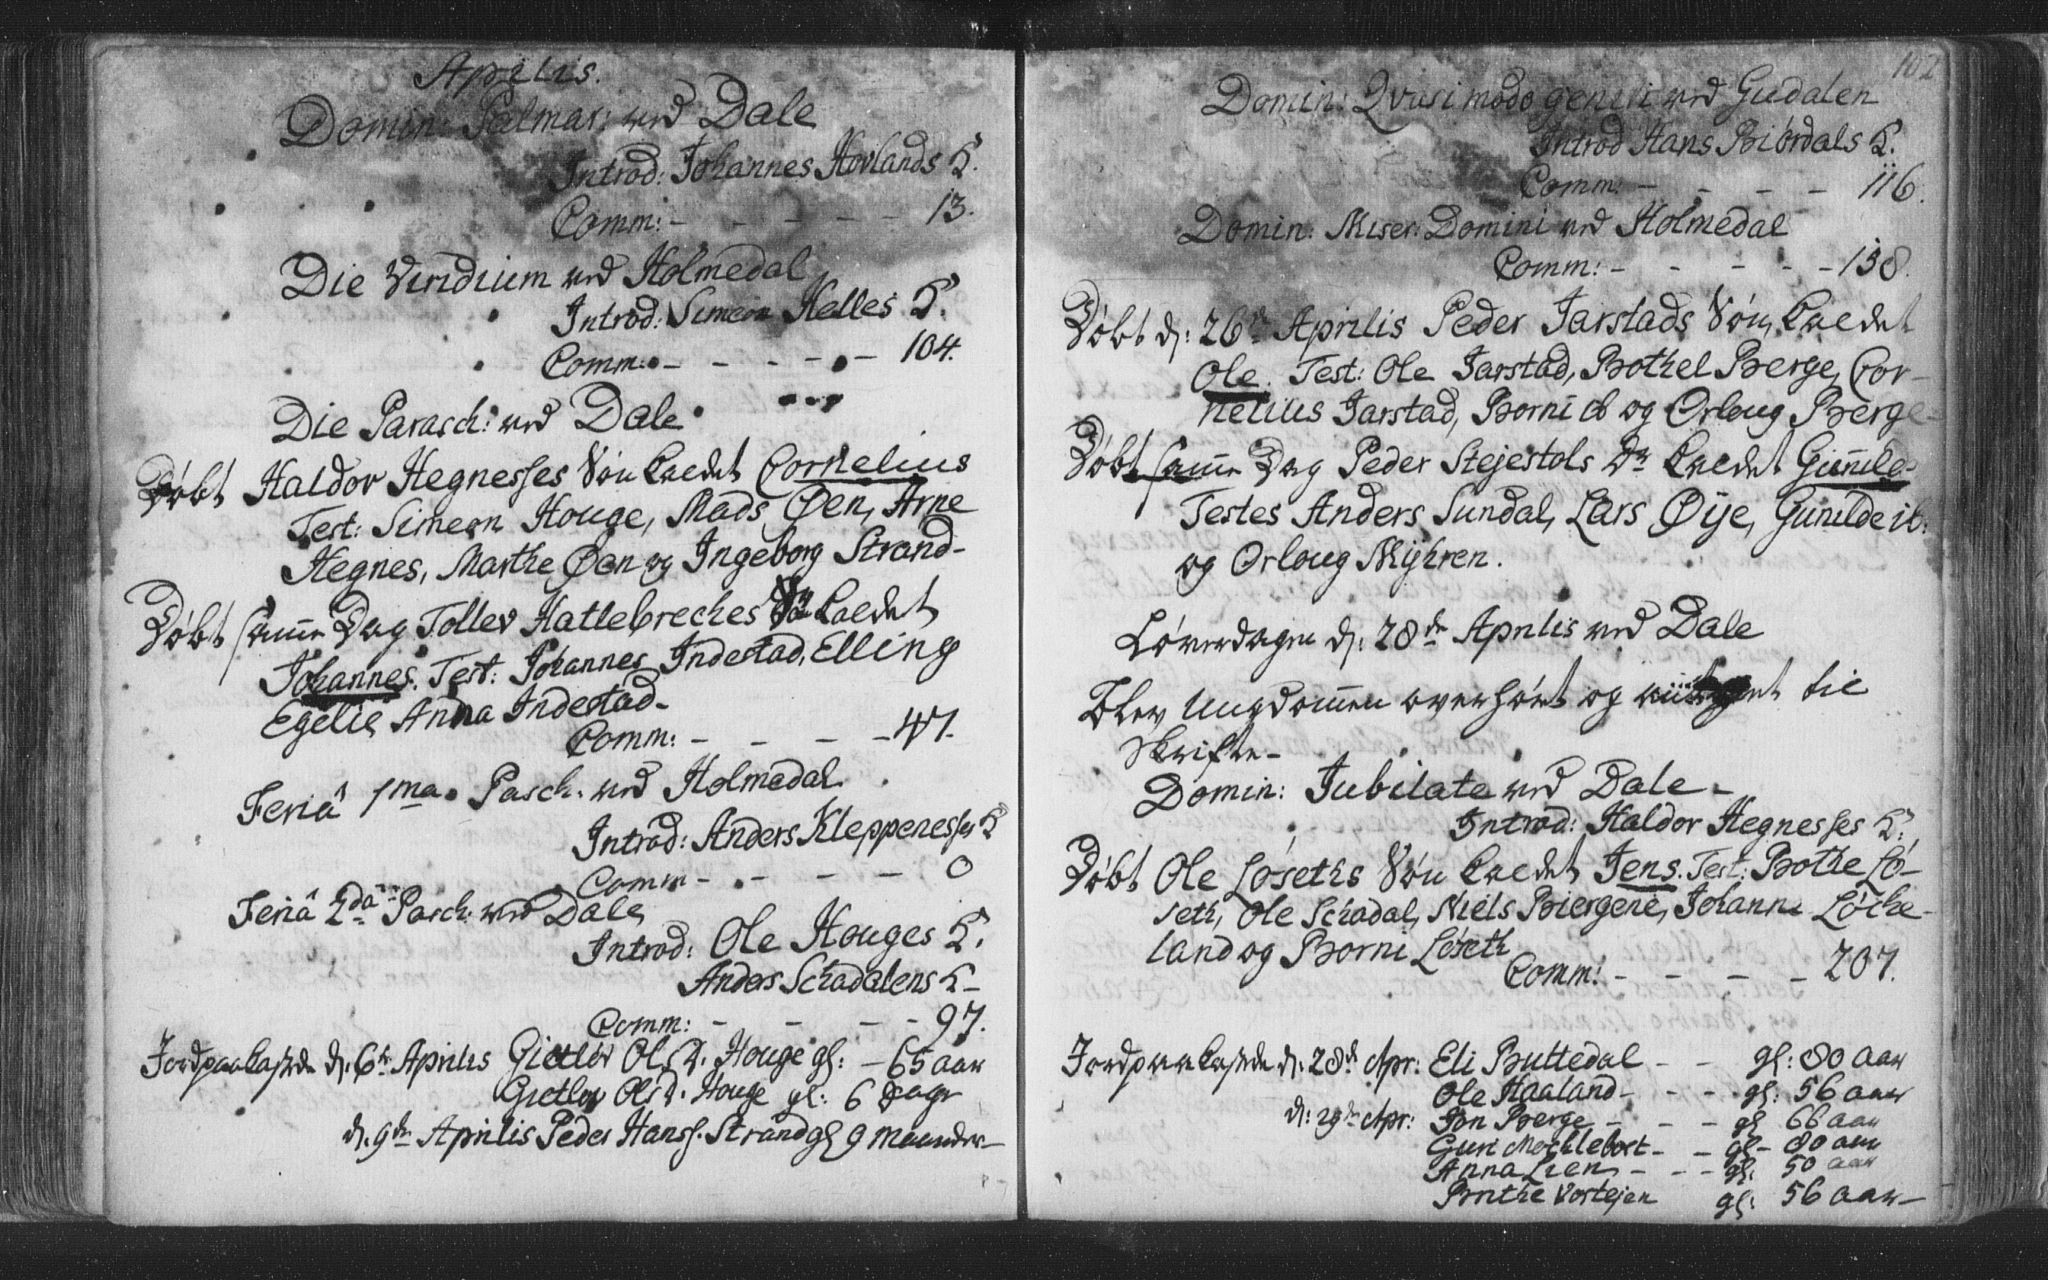 Aprilis.
Domin: Palmar: ved Dale
Introd: Johannes Hovlands K.
Comm: - - - - - 13.
Die Viridium ved Holmedal
Introd: Simeon Helles K.
Comm: - - - - - 104.
Die Parasch: ved Dale
Døbt Haldor Hegnesses Søn kaldet Cornelius
Test: Simeon Houge, Mads Øen, Arne
Hegnes, Marthe Øen og Ingeborg Strand-
Døbt samme Dag Tollev Hatlebreches Søn kaldet
Johannes. Test: Johannes Indestad, Elling
Egelie Anna Indestad-
Comm: - - - - 47.
Feriâ 1ma Pasch. ved Holmedal
Introd: Anders Kleppenesses K
Comm - - - - 0
Feriâ 2da Pasch: ved Dale
Introd: Ole Houges K.
Anders Schadalens K-
Comm: - - - - 97.
Jordpaakastede d: 6te Aprilis Gietløv Ols D. Houge gl: - 65 aar
Gietlov Ols D. Houge gl: 6 Dage
d. 9de Aprilis Peder Hanss. Strand gl 9 maaneder-
102
Domin: Qvasimodogeniti ved Gudalen
Introd Hans Biørdals K.
Comm: - - - - 116.
Domin: Miser: Domini ved Holmedal
Comm: - - - - - 138.
Døbt d: 26de Aprilis Peder Jarstads Søn kaldet
Ole. Test: Ole Jarstad, Bothel Berge, Cor-
nelius Jarstad, Borni ib og Orloug Berge-
Døbt samme Dag Peder Stejestols Dr kaldet Gunild-
Testes Anders Sundal, Lars Øije, Gunilde it:
og Orloug Myhren.
Løverdagen d: 28de Aprilis ved Dale
Blev Ungdommen overhørt og til
Skrifte-
Domin: Jubilate ved Dale-
Introd: Haldor Hegnesses K.
Døbt Ole Løseths Søn kaldet Jens. Test: Bothe Lø-
seth, Ole Schadal, Niels Biergene, Johanne Løche-
land og Borni Løseth
Comm: - - - - 207.
Jordpaakastede d: 28de Apr: Eli Buttedal - - gl: 80 aar
Ole Haaland - - - - gl: 56 aar
d: 29de Apr: Jon Berge - - - - gl 66 aar
Guri Mochlebost - - gl - 80 aar
Anna Lien - - - gl: 50 aar
Brithe Vortejen gl: 56 aar-